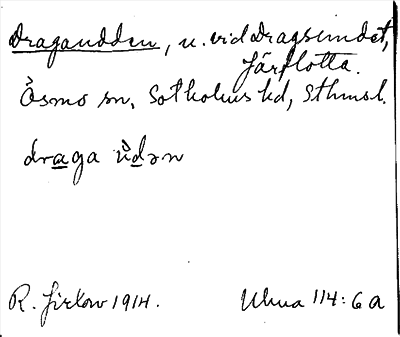 Dragaudden, u. vid Dragsundet,
Järflotta.
Ösmo sn, Sotholms hd, Sthmsl.
draga ùdən
R. Jirlow 1914. Uhua 114:6a